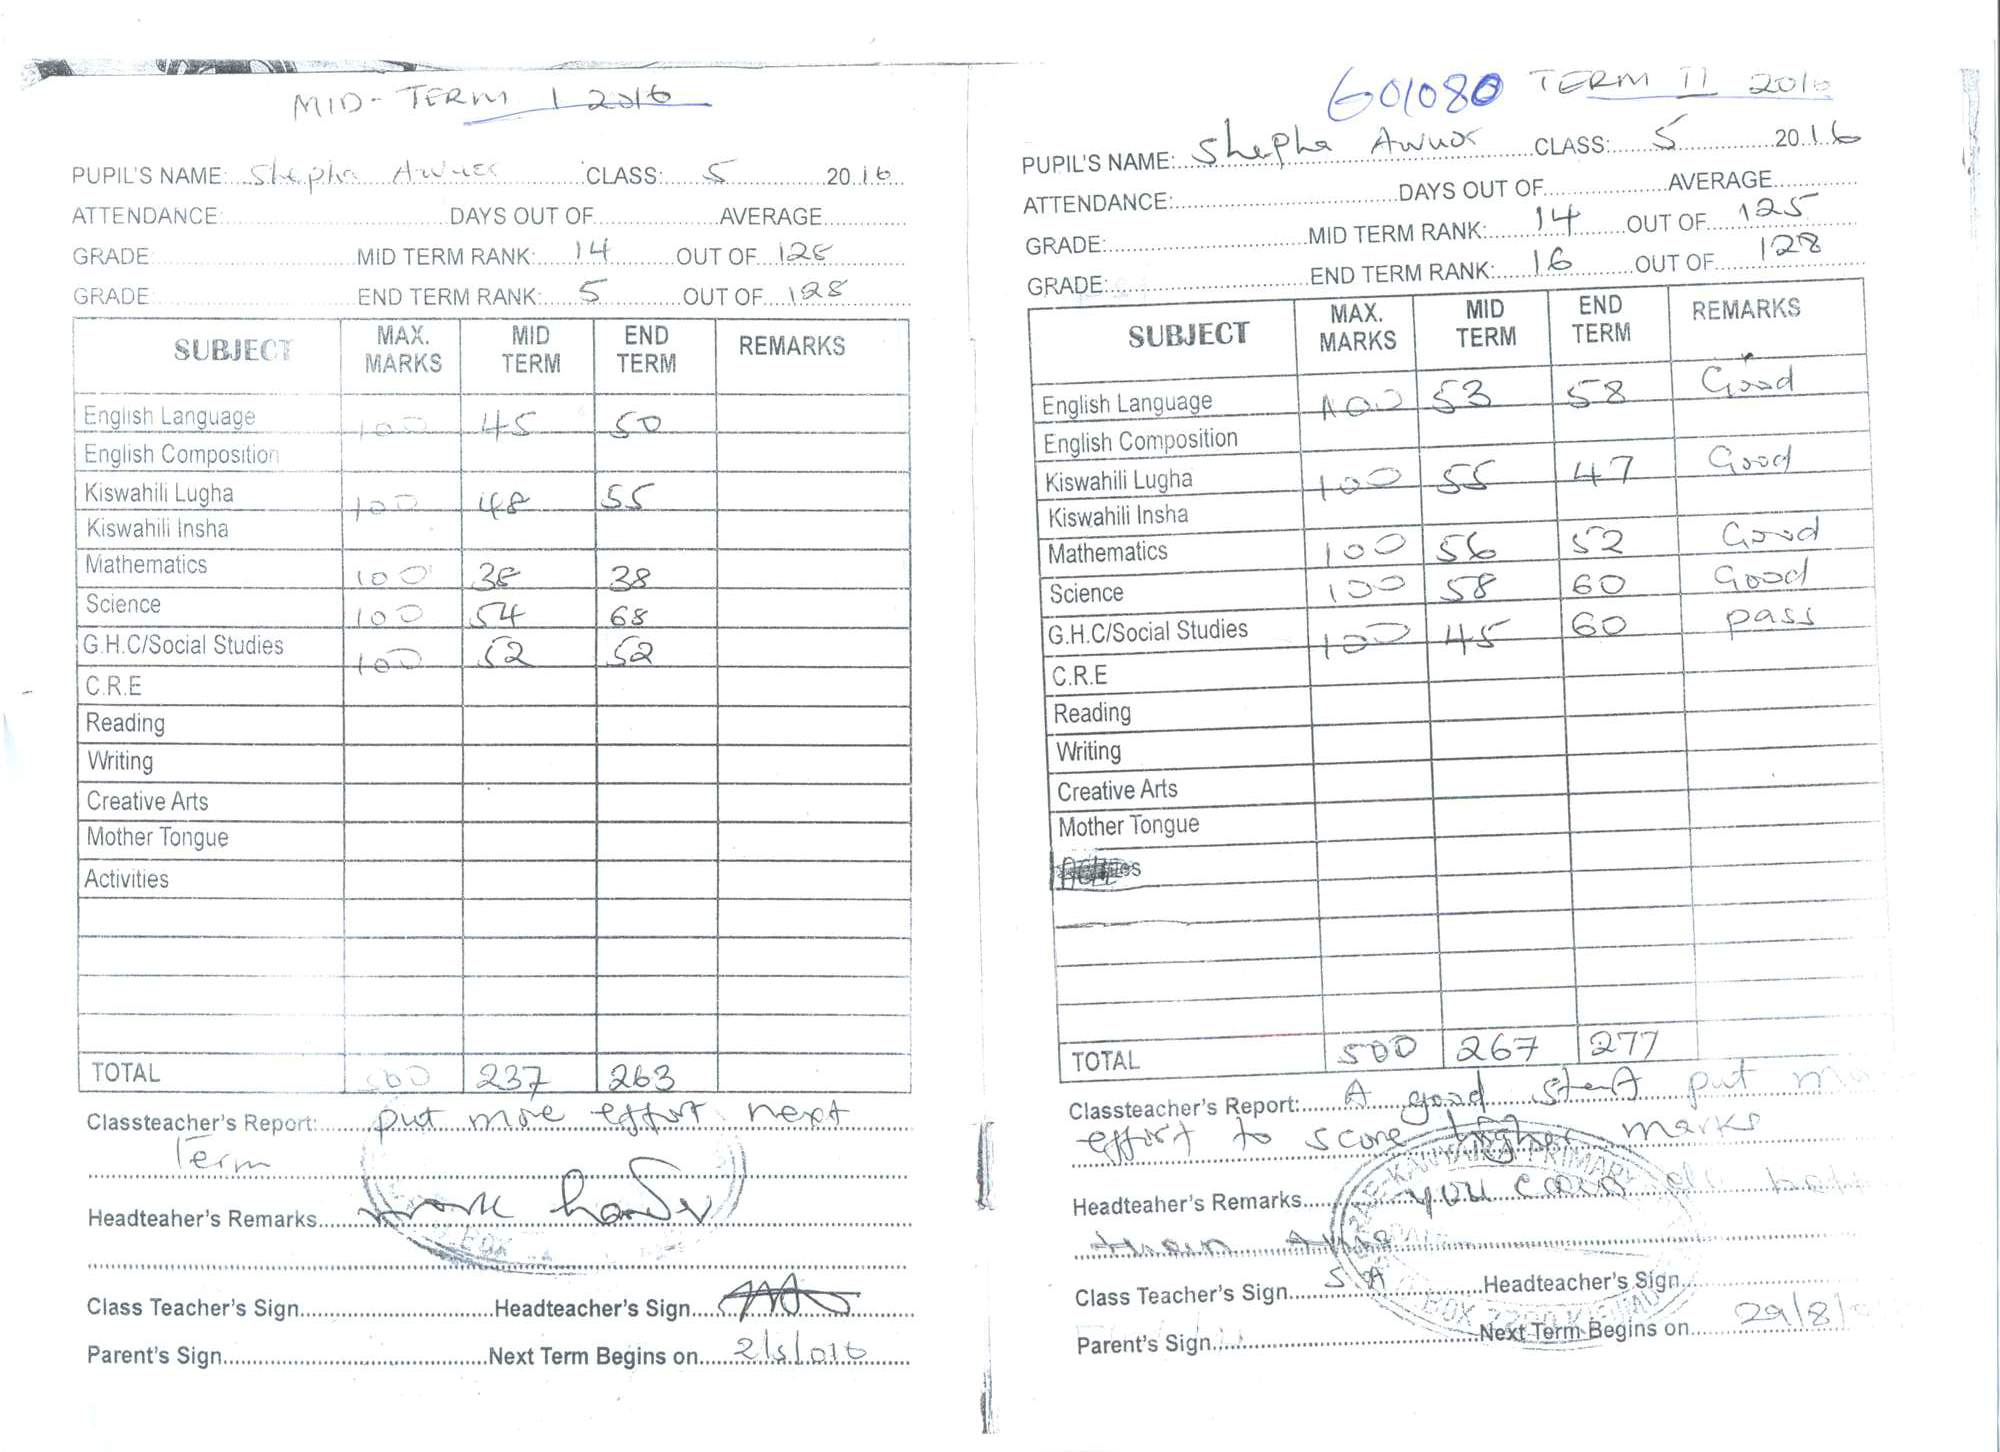 MID-TERM 1 2016
PUPIL'S NAME: Shepha Awuor CLASS: 5 2016
ATTENDANCE: DAYS OUT OF AVERAGE
GRADE MID TERM RANK: 14 OUT OF 125
GRADE END TERM RANK: 5 OUT OF 128
SUBJECT MAX. MARKS MID TERM END TERM REMARKS
English Language 100 45 50
English Composition
Kiswahili Lugha 100 48 55
Kiswahili Insha
Mathematics 100 38 38
Science 100 54 68
G.H.C/Social Studies 100 52 52
C.R.E
Reading
Writing
Creative Arts
Mother Tongue
Activities
TOTAL 500 237 263
Classteacher's Report: put more effort next
Term
Headteaher's Remarks work harder
Class Teacher's Sign Headteacher's Sign
Parent's Sign Next Term Begins on 2/5/016
601080 TERM II 2016
PUPIL'S NAME: Shepha Awuor CLASS: 5 2016
ATTENDANCE: DAYS OUT OF AVERAGE
GRADE: MID TERM RANK: 14 OUT OF 125
GRADE: END TERM RANK: 16 OUT OF 128
SUBJECT MAX. MARKS MID TERM END TERM REMARKS
English Language 100 53 58 Good
English Composition
Kiswahili Lugha 100 55 47 Good
Kiswahili Insha
Mathematics 100 56 52 Good
Science 100 58 60 Good
G.H.C/Social Studies 100 45 60 pass
C.R.E
Reading
Writing
Creative Arts
Mother Tongue
TOTAL 500 267 277
Classteacher's Report: A good start put
effort to score higher marks
Headteaher's Remarks you can do
than this
Class Teacher's Sign S.A Headteacher's Sign
Parent's Sign Next Term Begins on 29/8/